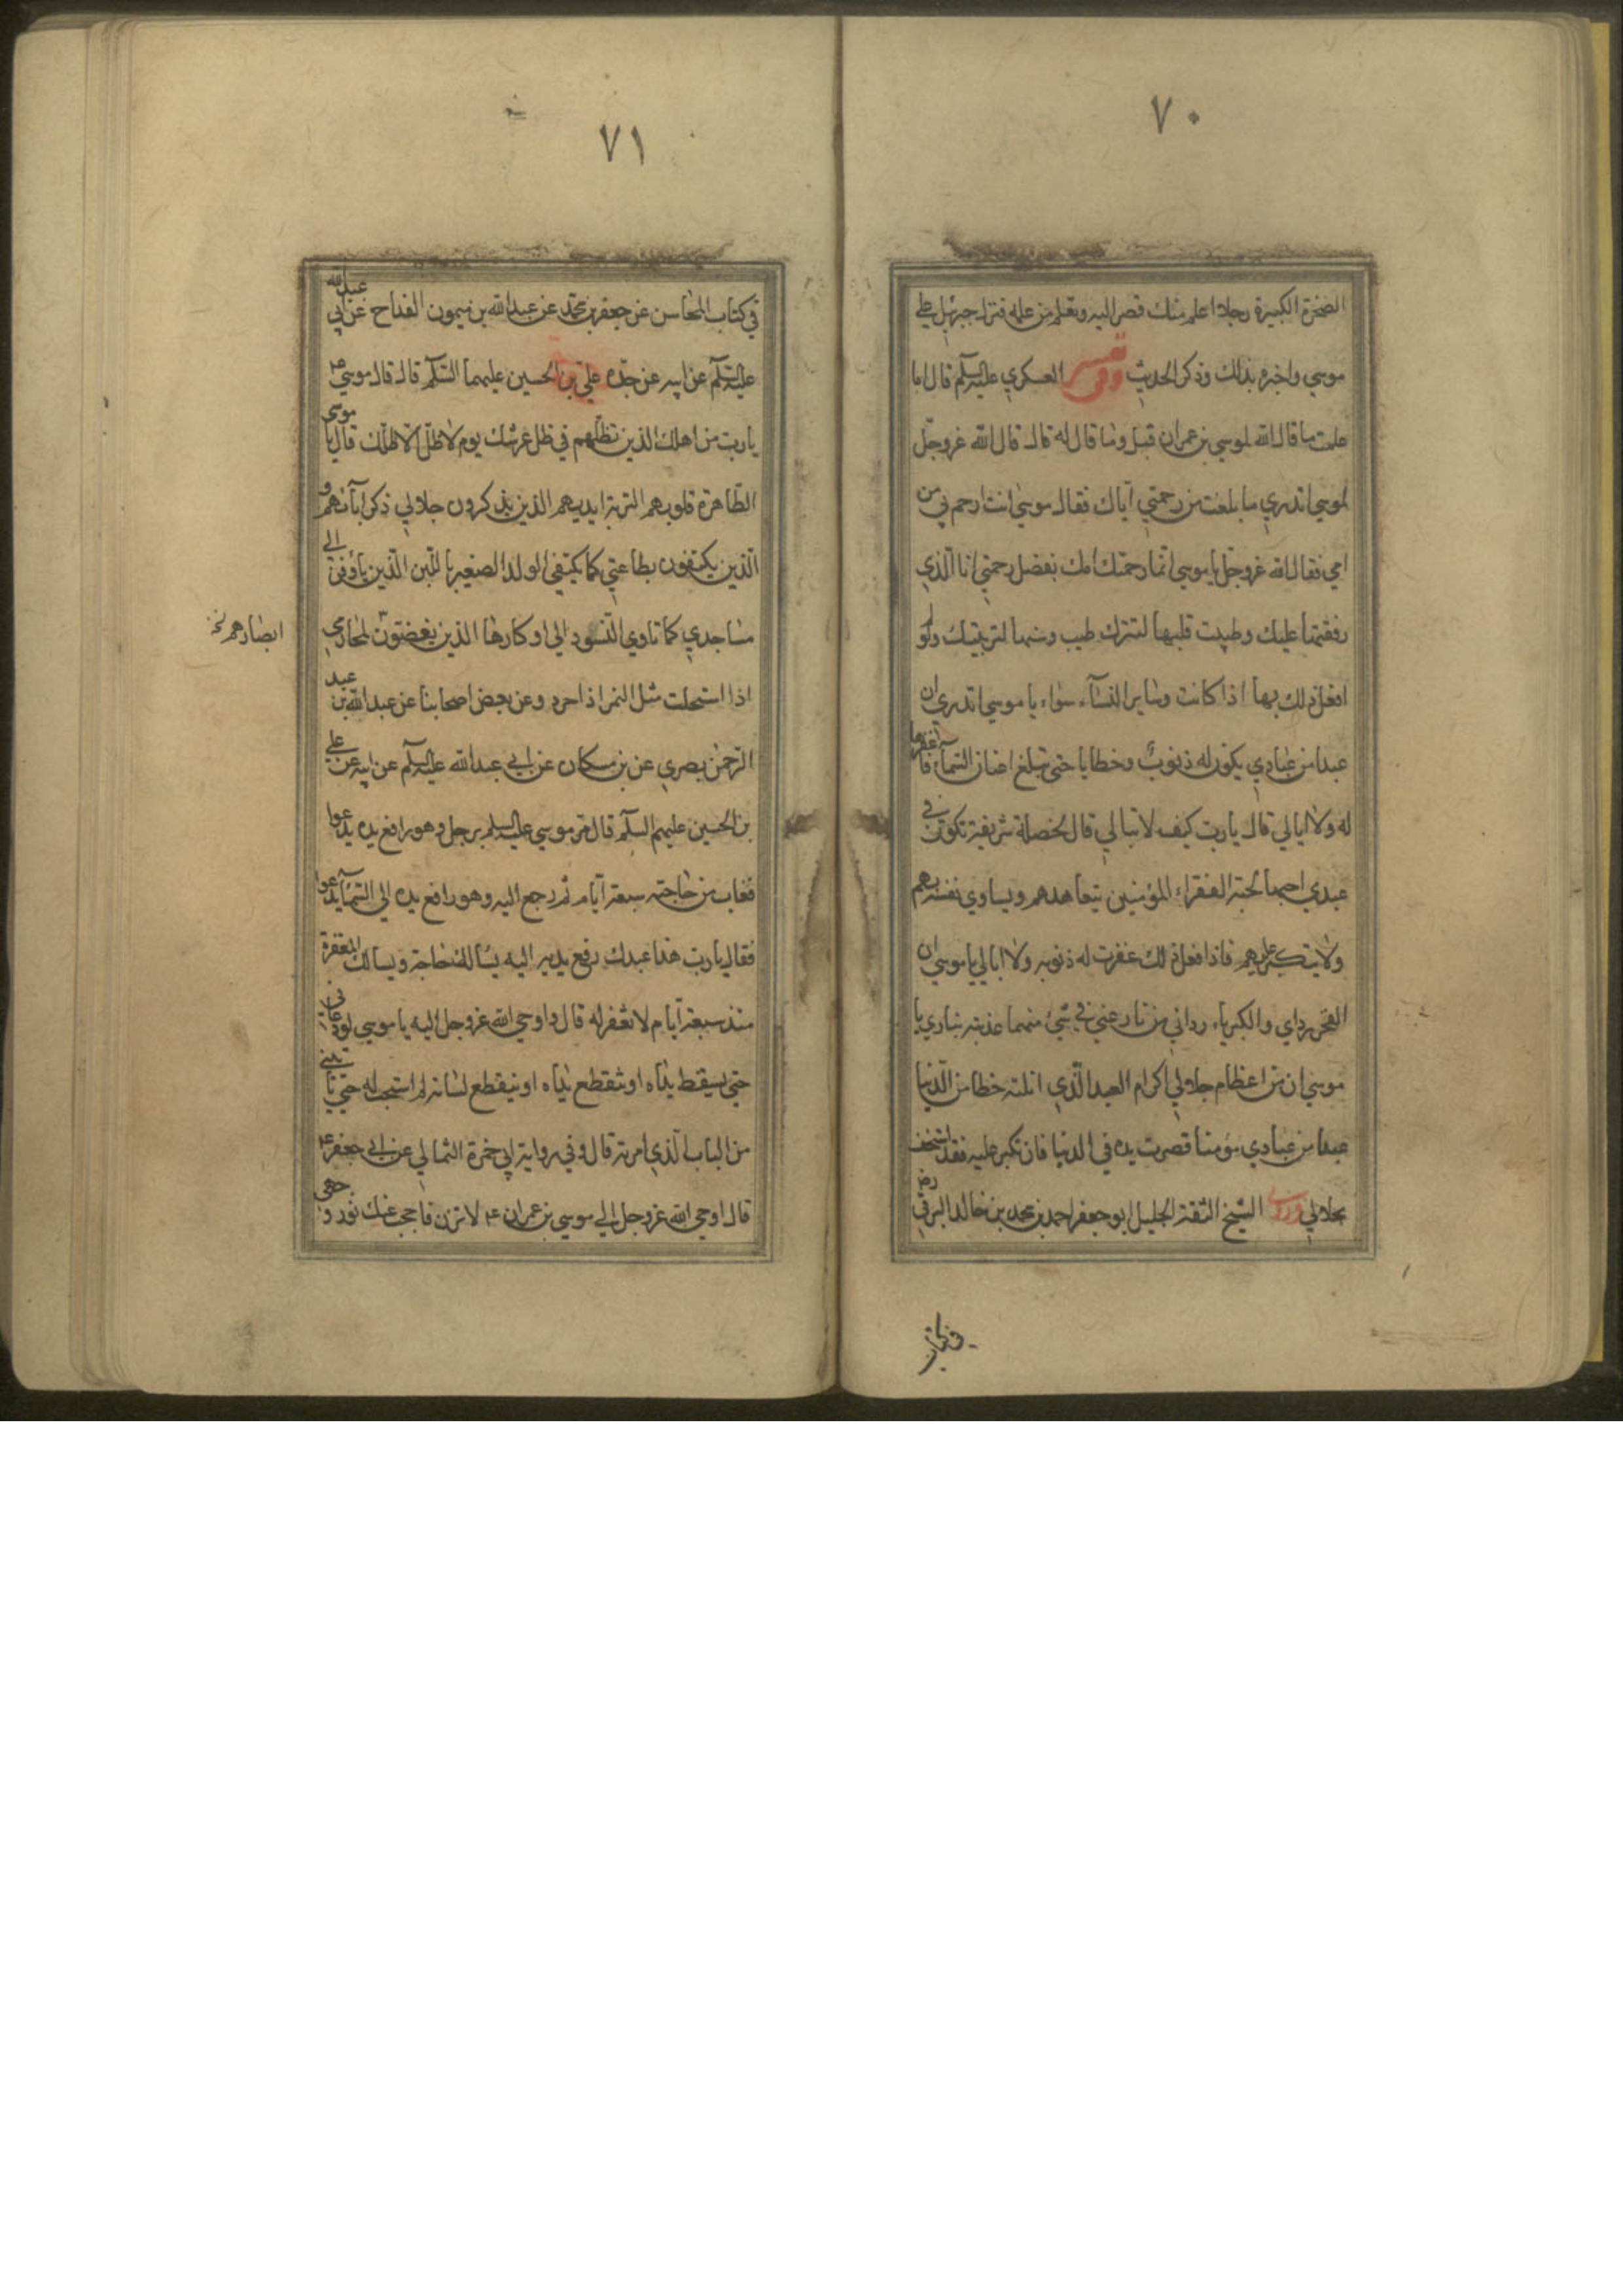 ٧٠
الصخرة الكبيرة رجلا اعلم منك فصر اليه وتعلم من علمه فنزل جبرئيل علي
موسي واخبره بذلك وذكر الحديث وفي تفسير العسكري عليه السلم قال اما
علمت ما قال الله لموسي بن عمران قيل وما قال له قال قال الله عزوجل
لموسي اتدري ما بلغت من رحمتي اياك فقال موسي انت ارحم بي من
امي فقال الله عزوجل يا موسي انما رحمتك امك بفضل رحمتي انا الذي
رققتها عليك وطيبت قلبها لتترك طيب وسنها لتربيتك ولو
افعل ذلك بها اذا كانت وساير النساء سواء يا موسي اتدري ان
عبدا من عبادي يكون له ذنوب وخطايا حتي تبلغ اعنان السماء فاغفرها
له ولا ابالي قال يا رب كيف لا تبالي قال لخصلة شريفة تكون في
عبدي احبها لحبة الفقراء المؤمنين يتعاهدهم ويساوي نفسه بهم
ولا يتكبر عليهم فاذا فعل ذلك غفرت له ذنوبه ولا ابالي يا موسي ان
الفخر رداي والكبرياء رداني من نازعني في شيء منهما عذبته بناري يا
موسي ان من اعظام جلالي اكرام العبد الذي انلته خطا من الدنيا
عبدا من عبادي مؤمنا قصرت يده في الدنيا فان تكبر عليه فقد استخف
بجلالي وروي الشيخ الثقة الجليل ابو جعفر احمد بن محمد بن خالد البرقي ره
في كتاب
٧١
في كتاب المحاسن عن جعفر بن محمد عن عبد الله بن ميمون القداح عن ابي عبد الله
عليه السلم عن ابيه عن جده علي بن الحسين عليهما السلم قال قال موسي ع
يا رب من اهلك الذين تظلهم في ظل عرشك يوم لا ظل الا ظلك قال يا موسي
الطاهرة قلوبهم التربة ايديهم الذين يذكرون جلالي ذكر ابآئهم و
الذين يكتفون بطاعتي كما يكتفي الولد الصغير باللبن الذين ياؤون الي
مساجدي كما تاوي النسور الي اوكارها الذين يغضبون لمحارمي
ابصارهم نخ
اذا استحلت مثل النمر اذا حرد وعن بعض اصحابنا عن عبد الله بن عبد
الرحمن بصري عن بن مسكان عن ابي عبد الله عليه السلم عن ابيه عن علي
بن الحسين عليهم السلم قال مر موسي عليه السلم برجل وهو رافع يده يدعوا
فغاب من حاجته سبعة ايام ثم رجع اليه وهو رافع يده الي السمآء يدعوا
فقال يا رب هذا عبدك رفع يديه اليه يسالك حاجة ويسالك المغفرة
منذ سبعة ايام لا تغفر له قال واوحي الله عزوجل اليه يا موسي لو دعاني
حتي يسقط يداه او تنقطع يداه او ينقطع لسانه لم استجب له حتي ياتيني
من الباب الذي امرته قال وفي رواية ابي حمزة الثمالي عن ابي جعفر ع
قال اوحي الله عزوجل الي موسي بن عمران ع